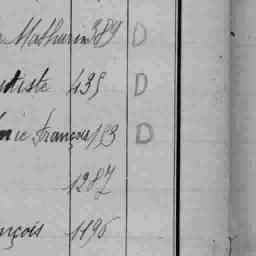 Mathurin 389 D
tiste 435 D
rie François 193 D
1287
nçois 1196